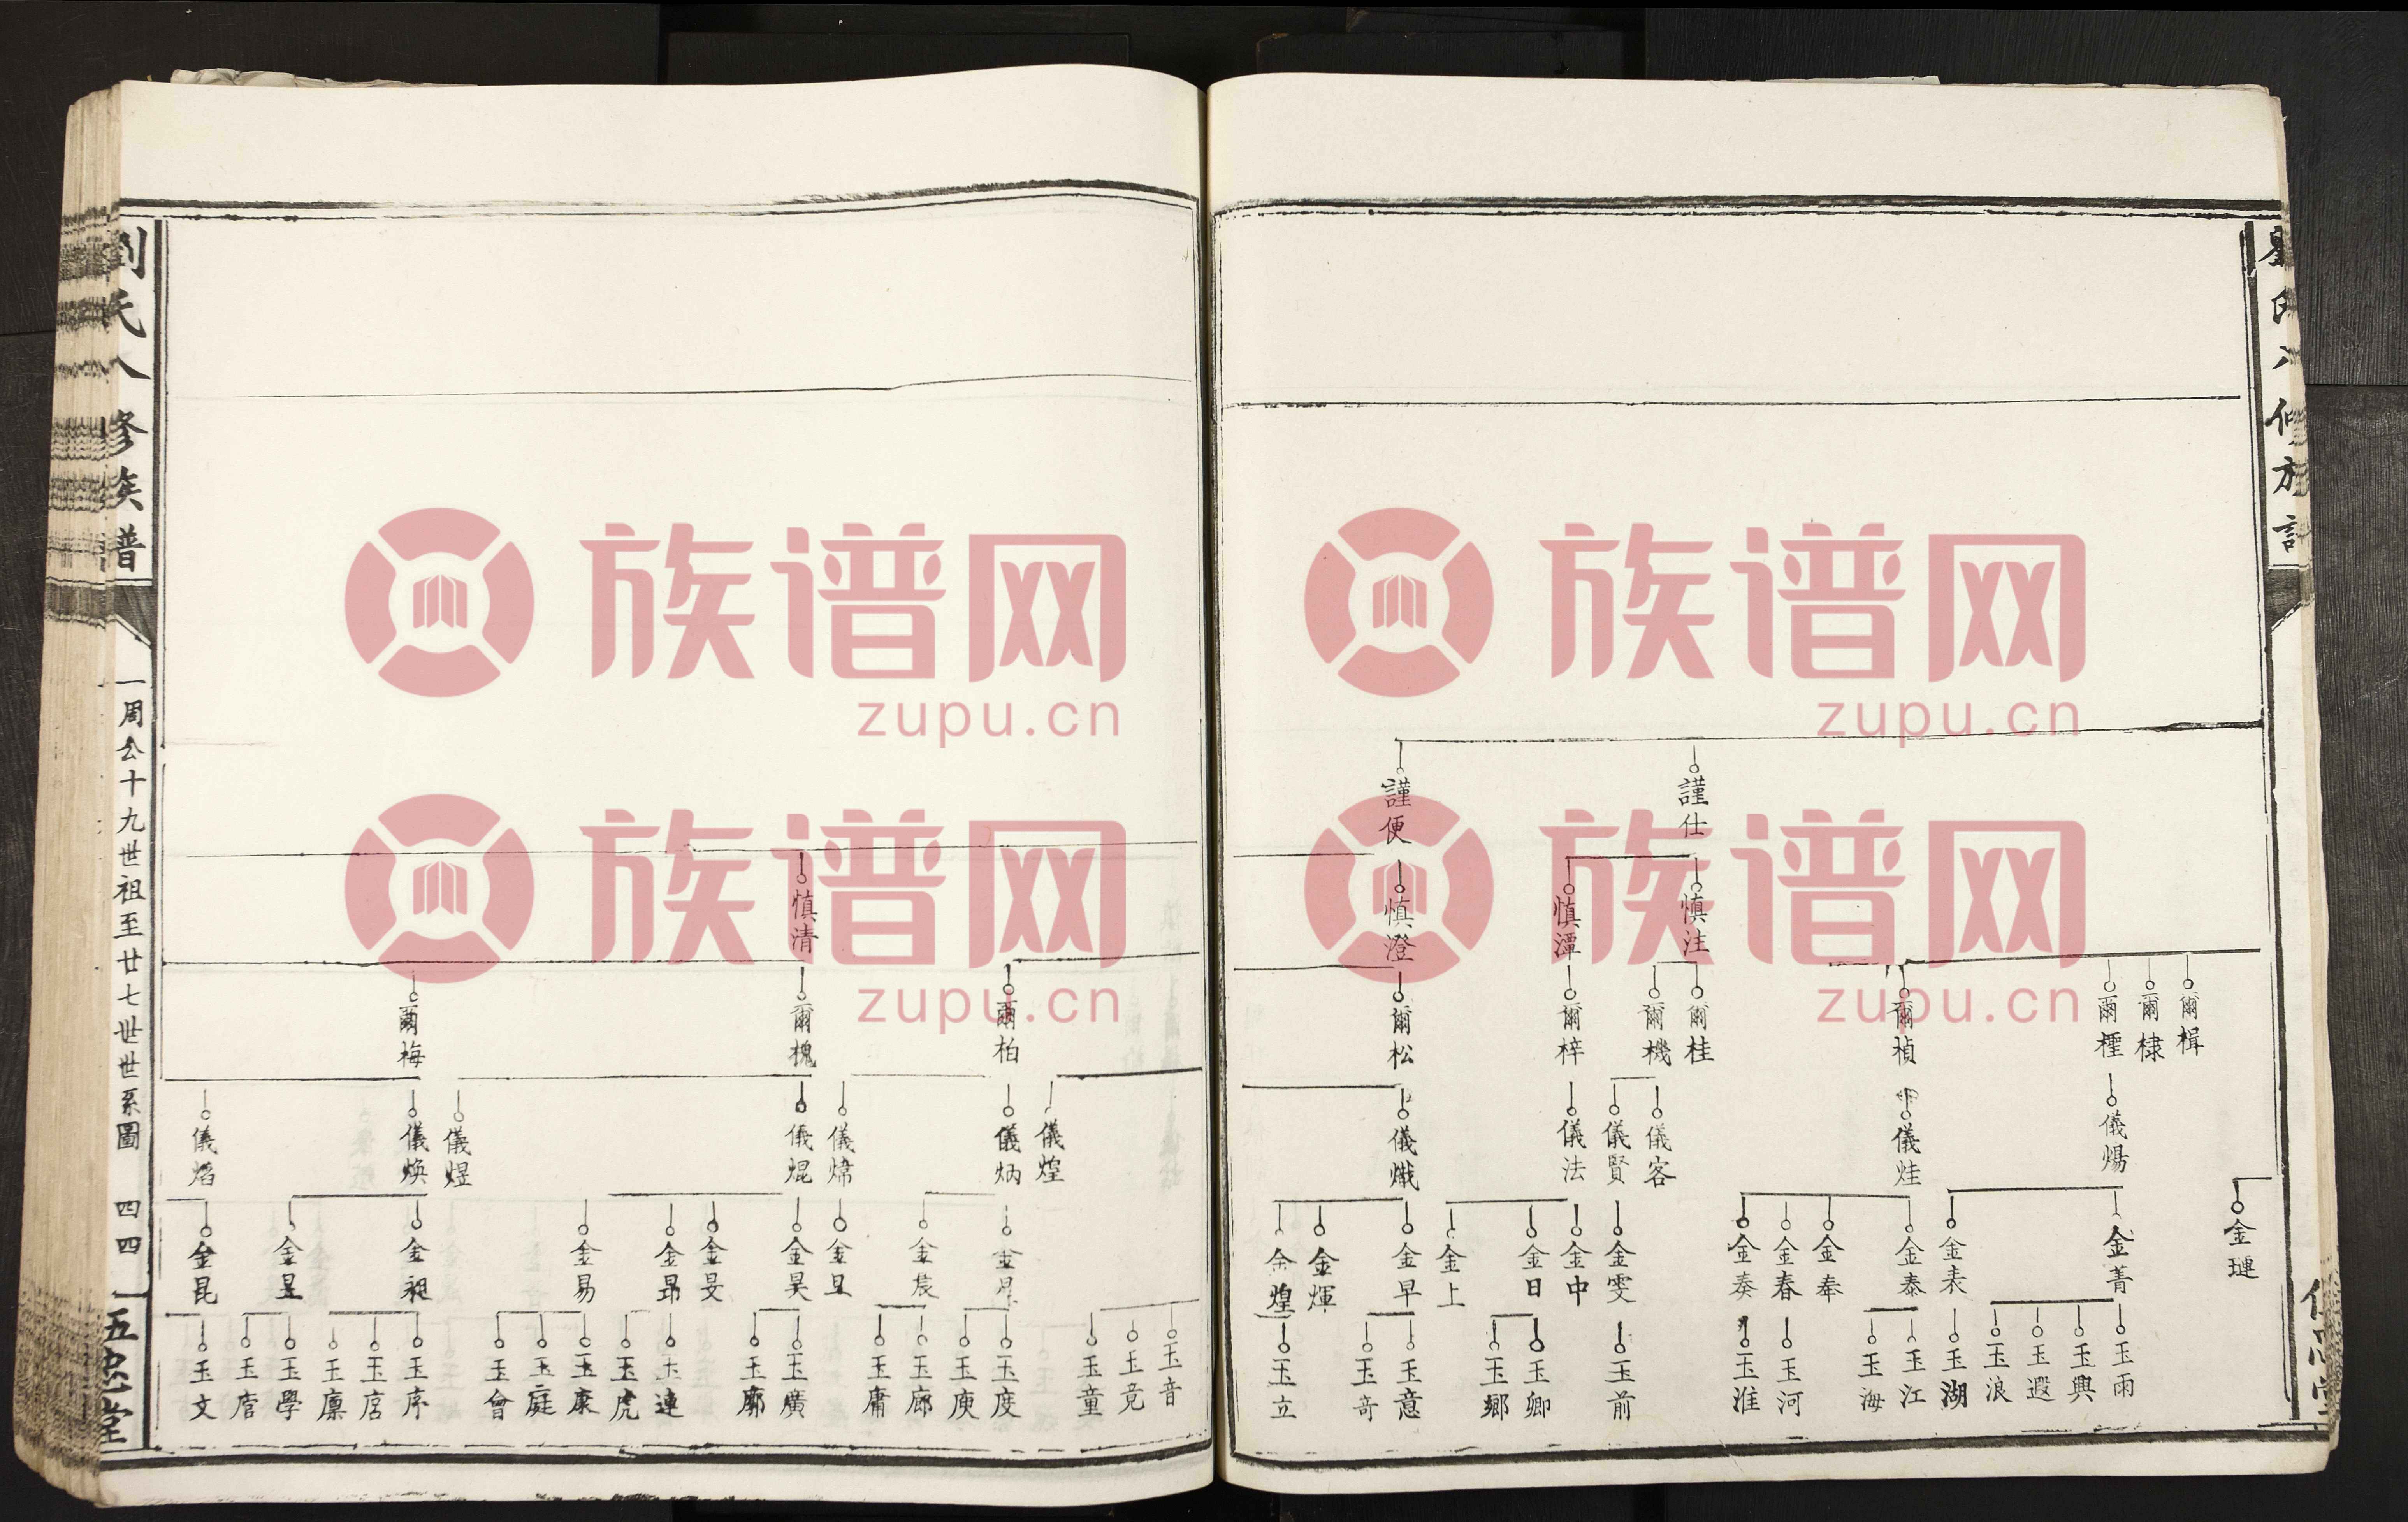 劉氏八修族譜
謹仕
謹便
慎注
慎潭
慎澄
爾楫
爾棣
爾檉
爾楨
爾桂
爾機
爾梓
爾松
儀煬
儀烓
儀客
儀賢
儀法
儀熾
金璉
金菁
金表
金泰
金奉
金春
金奏
金雯
金中
金日
金上
金早
金輝
金煌
玉雨
玉興
玉遐
玉浪
玉湖
玉江
玉海
玉河
玉淮
玉前
玉卿
玉鄉
玉意
玉奇
玉立
慎清
爾柏
爾槐
爾梅
儀煌
儀炳
儀煒
儀焜
儀煜
儀煥
儀焰
金晨
金昊
金旻
金昴
金易
金昱
金昆
玉音
玉竟
玉童
玉度
玉庾
玉廊
玉庸
玉廣
玉廓
玉連
玉虎
玉康
玉庭
玉會
玉序
玉店
玉廩
玉學
玉唐
玉文
劉氏八修族譜
周公十九世祖至廿七世世系圖
四四
五忠堂
族谱网
zupu.cn
族谱网
zupu.cn
族谱网
zupu.cn
族谱网
zupu.cn